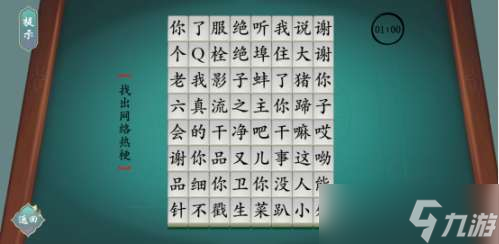 提示
01:00
找出网络热梗
你了服绝听我说谢
个Q栓绝埠住大谢
老我影子蚌了猪你
六真流之主你蹄子
会的干净吧干嘛哎
谢你品又儿事这呦
品细你卫你没人能
针不戳生菜趴小
返回
九游